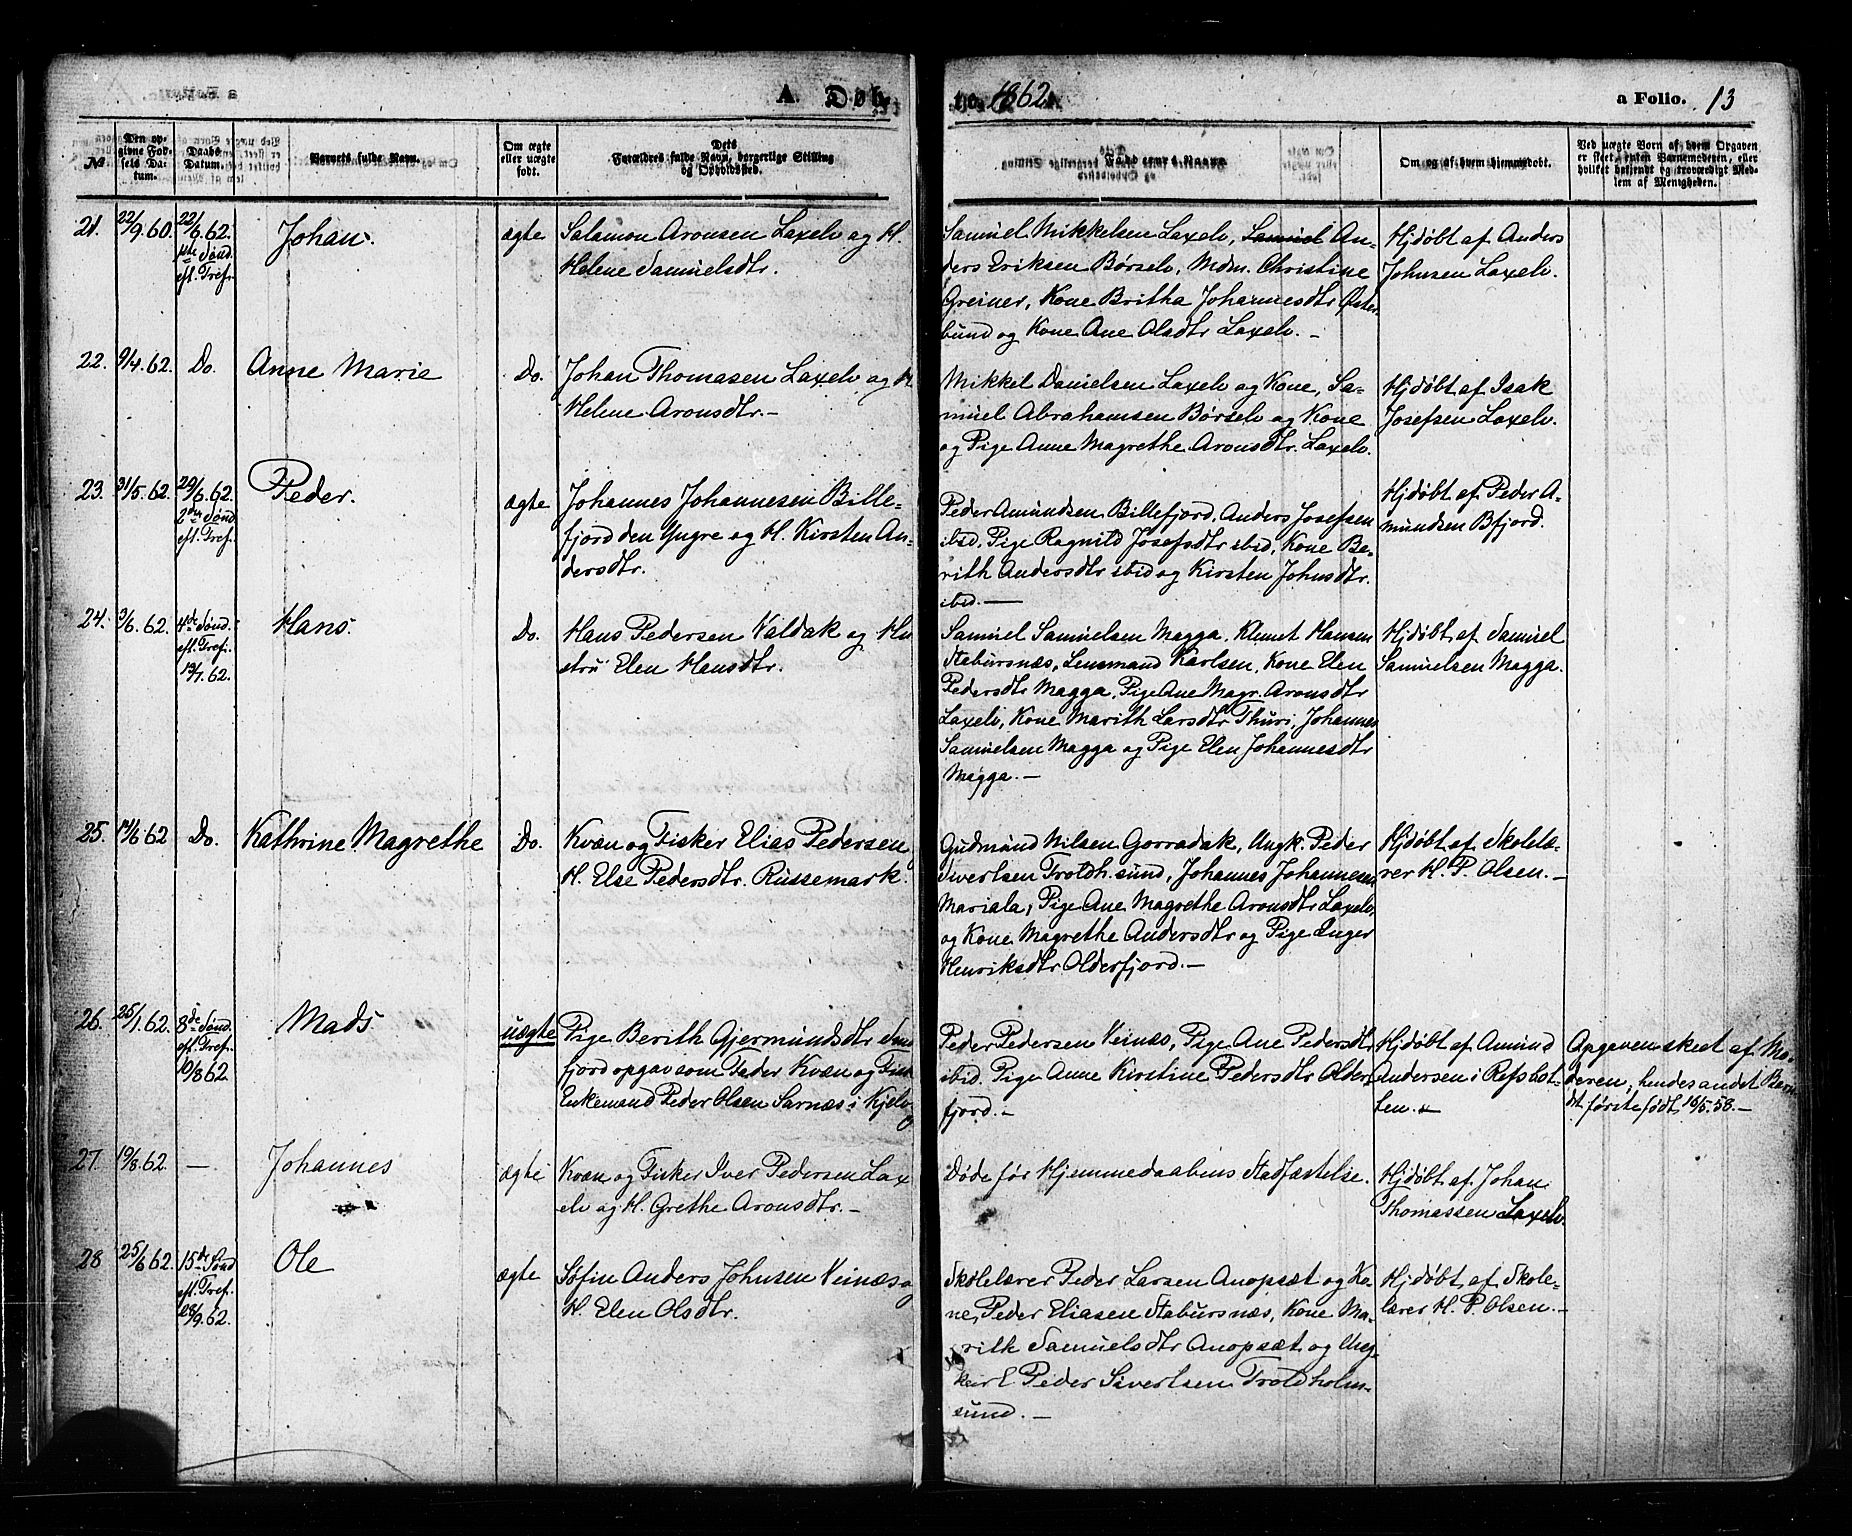 A. Døbte. 1862. a Folio. 13
№
Den opgivne Fødsels Datum.
Daabs Datum.
Barnets fulde Navn.
Om ægte eller uægte født.
Dets Forældres fulde Navn, borgerlige Stilling og Opholdssted.
Faddernes Navne
Om og af hvem hjemmedøbt.
Ved uægte Børn af hvem Opgaven er skeet, enten Barnemoderen, eller hvilket beskjendt og troværdigt Medlem af Menigheden.
21. 22/9.60. 22/6.62.
1ste Sønd.
eft. Tref.
Johan.
ægte
Salamon Aronsen Laxelv og H.
Helene Samuelsdtr.
Samuel Mikkelsen Laxelv, Samuel An-
ders Eriksen Børselv, Mdm. Christine
Greiner, Kone Britha Johannesdtr Øster
bund og Kone Ane Olsdtr Laxelv. -
Hjdøbt af Anders
Johnsen Laxelv.
22. 9/4.62. Do.
Anne Marie
Do.
Johan Thomasen Laxelv og H.
Helene Aronsdtr.-
Mikkel Danielsen Laxelv og Kone, Sa-
muel Abrahamsen Børselv og Kone
og Pige Anne Magrethe Aronsdtr. Laxelv.
Hjdøbt af Isak
Josefsen Laxelv.
23. 31/5.62. 29/6.62.
2den Sønd
eft. Tref.
Peder.
ægte
Johannes Johannesen Bille-
fjord den Yngre og H. Kirsten An-
dersdtr.
Peder Amundsen Billefjord, Anders Josefsen
ibid, Pige Ragnild Josefsdtr ibid, Kone Be-
rith Andersdtr ibid og Kirsten Johnsdtr.
ibid.-
Hjdøbt af Peder A-
mundsen Bfjord.
24. 3/6.62. 4de Sønd.
eft. Tref.
13/7.62.
Hans.
Do.
Hans Pedersen Valdak og Hu
stru Elen Hansdtr.
Samuel Samuelsen Magga, Klemet Hansen
Stabursnæs, Lensmand Karlsen, Kone Elen
Pedersdtr Magga, Pige Ane Magr. Aronsdtr
Laxelv, Kone Marith Larsdtr Thuri, Johannes
Samuelsen Magga og Pige Elen Johannesdtr
Magga.-
Hjdøbt af Samuel
Samuelsen Magga.
25. 14/6.62 Do.
Kathrine Magrethe
Do.
Kvæn og Fisker Elias Pedersen
H. Else Pedersdtr. Russemark.
Gudmund Nilsen Gorradak, Ungk. Peder
Sivertsen Troldh.sund, Johannes Johannesen
Mariala, Pige Ane Magrethe Aronsdtr Laxelv,
og Kone Magrethe Andersdtr og Pige Inger
Henriksdtr Olderfjord.-
Hjdøbt af Skolelæ-
rer H. P. Olsen.-
26. 25/1.62. 8de Sønd.
eft. Tref.
10/8 62.
Mads
uægte
Pige Berith Gjermundsdtr
fjord opgav som Fader Kvæn og
Enkemand Peder Olsen Sarnæs i Kjelv
Peder Pedersen Veinæs, Pige Ane Pedersdtr
ibid. Pige Anne Kirstine Pedersdtr Older
fjord.-
Hjdøbt af Amund
Andersen i Refsbot-
ten.-
Opgaven skeet af Mo-
deren, hendes andet Barn
det første født 16/5.58.-
27. 19/8.62. -
Johannes
ægte
Kvæn og Fisker Iver Pedersen Lax
elv og H. Grethe Aronsdtr.-
Døde før Hjemmedaabens Stadfæstelse.
Hjdøbt af Johan
Thomassen Laxelv.
28 25/6 62. 15de Sønd
eft. Tref.
28/9.62.
Ole
ægte
Søfin Anders Johnsen Veinæs o
H. Elen Olsdtr.
Skolelærer Peder Larsen Anopsæt og Ko-
ne, Peder Eliasen Stabursnæs, Kone Ma-
rith Samuelsdtr Anopsæt og Ung-
karl Peder Sivertsen Troldholm-
sund.-
Hjdøbt af Skole-
lærer H. P. Olsen.-